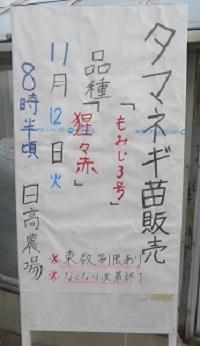 タマネギ苗販売
「もみじ3号」
品種「猩々赤」
11月12日火
8時半頃 日高農場
※束数制限あり
※なくなり次第終了